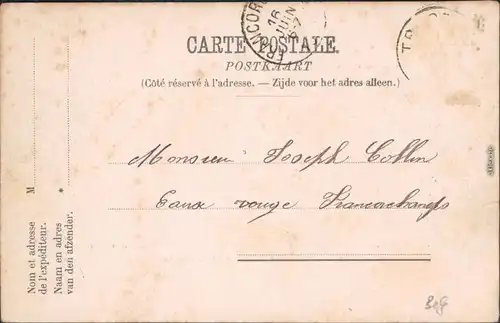 CARTE POSTALE.
POSTKAART
(Côté réservé à l'adresse. — Zijde voor het adres alleen.)
FRANCOR
16
JUIN
Monsieur Joseph Collin
Eaux rouge Francorchamps
M
*
Nom et adresse
de l'expéditeur.
Naam en adres
van den afzender.